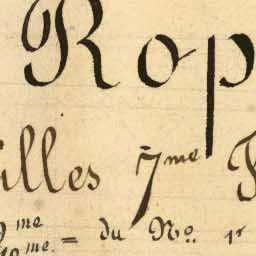 Rop
illes 7me
me
10me. = du No. 1r